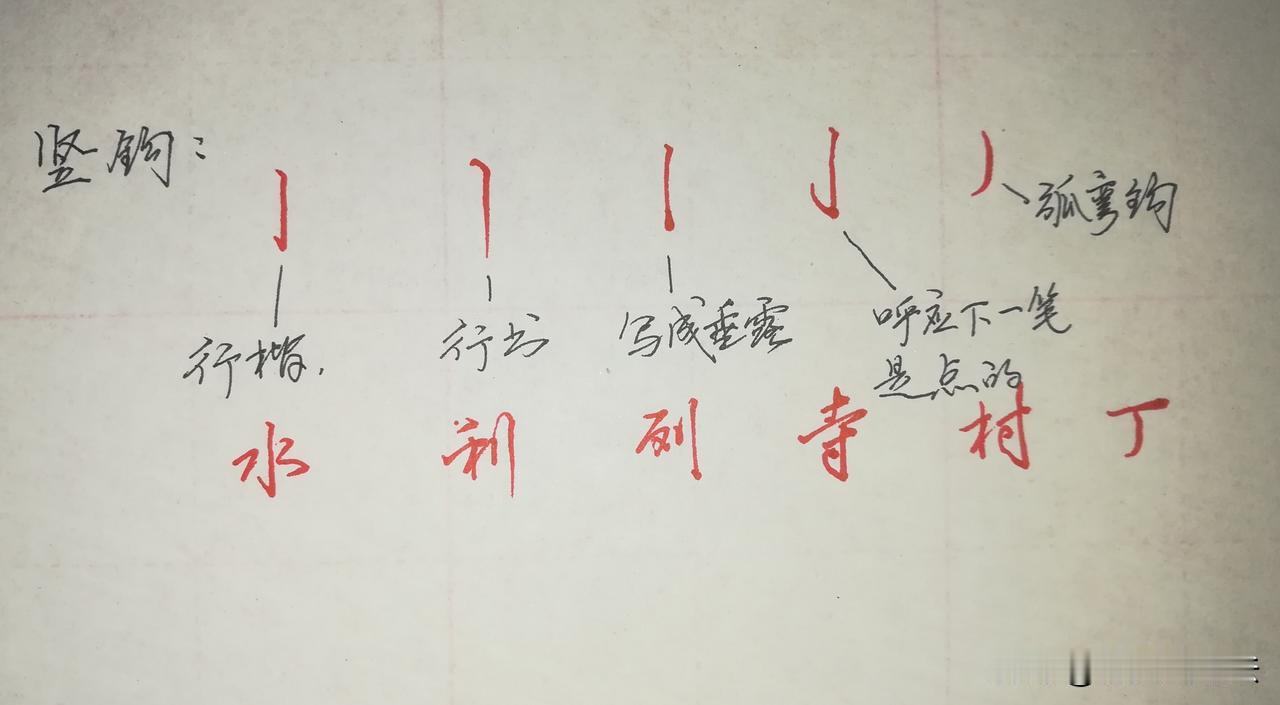 竖钩：
弧弯钩
行楷.
行书
写成垂露
呼应下一笔
是点的
水 利 列 寺 村 丁